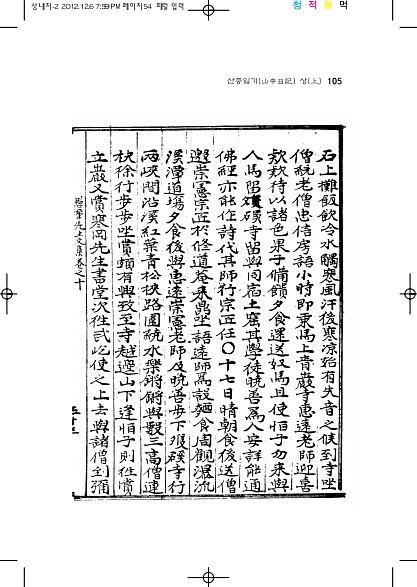 상내지-2 2012.12.6 7:59 PM 페이지54
청 적 황 먹
산중일기(山中日記) 상(上) 105
石上攤飯飮冷水觸寒風汗後寒凉殆有失音之候到寺坐
僧統老僧忠信房語小時卽東馬上靑巖寺惠遠老師迎喜
款款待以諸色果子備饋夕食還送奴馬且使怕子勿來與
人馬留磺寺留與同宿上室其學徒晩善爲人安詳能通
佛經亦能作詩代其師行宗匠任〇十七日晴朝食後送僧
邀崇憲宗匠於修道菴來鼎坐語遠師爲設麵食周觀瀑流
溪潭道場夕食後與惠遠崇憲老師及晩善步下磺寺行
兩峽間沿溪紅葉靑松挾路圍繞水樂鏘鏘與數三高僧連
袂徐行步步坐賞頗有興致至寺越邊山下逢怕子則往賞
立巖又賞寒岡先生書堂次往武屹使之上去與諸僧到彌
先生文集卷之十
五十三